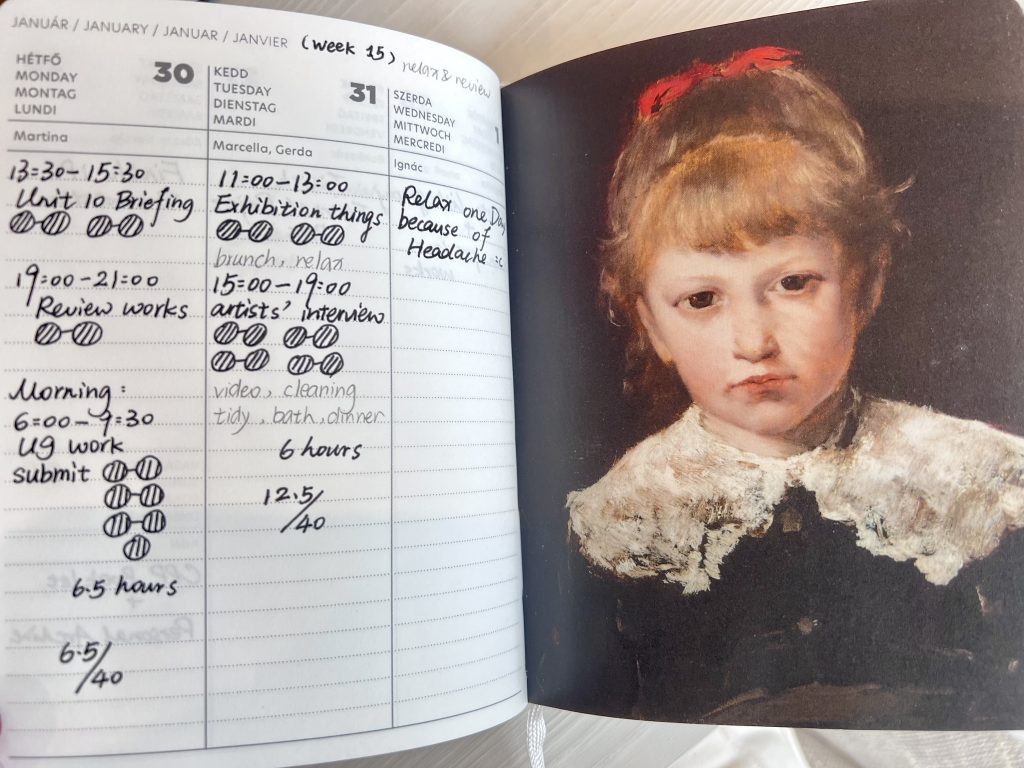 JANUÁR / JANUARY / JANUAR / JANVIER (week 15) relax & review
HÉTFŐ
MONDAY
MONTAG
LUNDI
30
Martina
13:30-15:30
Unit 10 Briefing
19:00-21:00
Review works
Morning:
6:00-9:30
UG work
submit
6.5 hours
6.5/40
KEDD
TUESDAY
DIENSTAG
MARDI
31
Marcella, Gerda
11:00-13:00
Exhibition things
brunch, relax
15:00-19:00
artists' interview
video, cleaning
tidy, bath, dinner
6 hours
12.5/40
SZERDA
WEDNESDAY
MITTWOCH
MERCREDI
1
Ignác
Relax one Day
because of
Headache :c